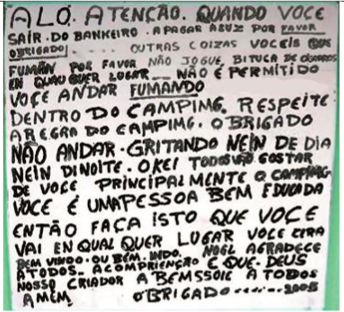 ALO. ATENÇÃO. QUANDO VOCE
SAIR. DO BANHEIRO. APAGAR ALUZ POR FAVOR
OBRIGADO...... OUTRAS COIZAS VOCEIS QUE
FUMÃN POR FAVOR NÃO JOGUE, BITUCA DE CIGARROS
EN QUAUQUER LUGAR... NÃO É PERMITIDO
VOÇE ANDAR FUMANDO
DENTRO DO CAMPIMG. RESPEITE
AREGRA DO CAMPIMG. OBRIGADO
NÃO ANDAR. GRITANDO NEIN DE DIA
NEIN DINOITE. OKEI TODOS VÃO GOSTAR
DE VOCE PRINCIPALMENTE O CAMPIMG
VOCE É UMAPESSOA BEM EDUCADA
ENTÃO FAÇA ISTO QUE VOCE
VAI EN QUAL QUER LUGAR VOCE CERA
BEM VINDO. OU BEM. INDO. NOEL AGRADECE
ATODOS. ACOMPRIENÇÃO E QUE. DEUS
NOSSO CRIADOR ABEMSSOIE ATODOS
AMÉM. OBRIGADO